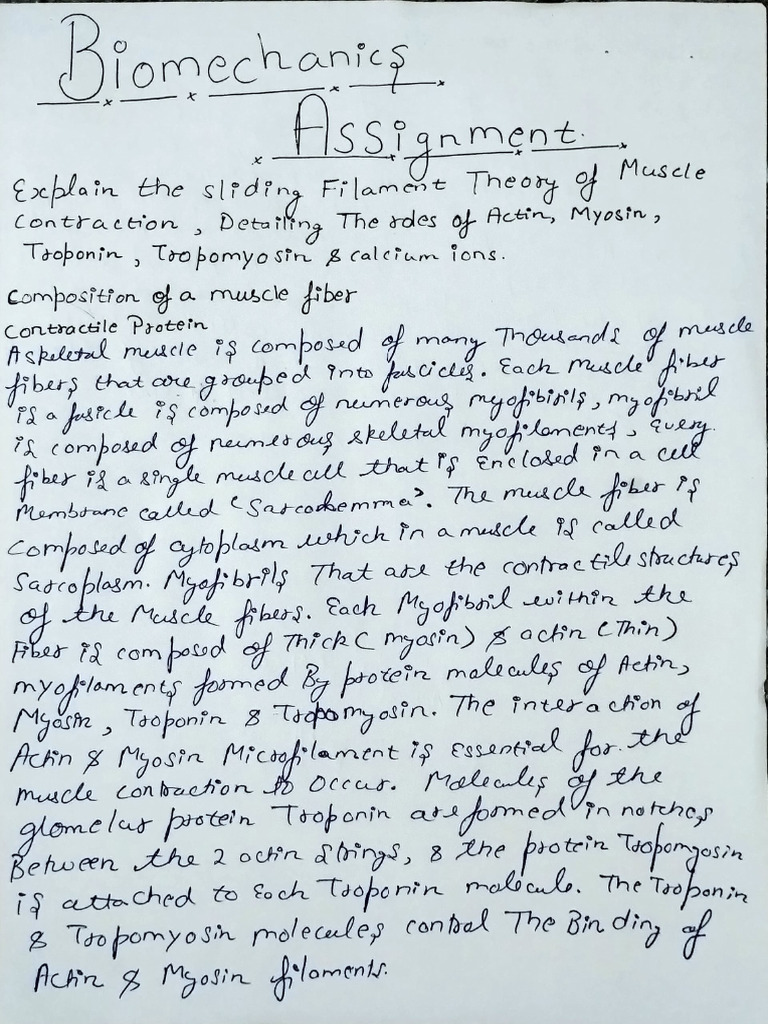 Biomechanics
Assignment.
Explain the sliding Filament Theory of Muscle
Contraction, Detailing The roles of Actin, Myosin,
Troponin, Tropomyosin & calcium ions.
Composition of a muscle fiber
Contractile Protein
A skeletal muscle is composed of many Thousands of muscle
fibers that are grouped into fascicles. Each muscle fiber
is a fasicle is composed of numerous myofibirils, myofibril
is composed of numerous skeletal myofiloments, Every
fiber is a single muscle all that is enclosed in a cell
Membrane called 'Sarcolemma'. The muscle fiber is
Composed of cytoplasm which in a muscle is called
Sarcoplasm. Myofibrils That are the contractile structures
of the Muscle fibers. Each Myofibril within the
Fiber is composed of Thick (myosin) & actin (Thin)
myofilaments formed By protein molecules of Actin,
Myosin, Troponin & Tropomyosin. The interaction of
Actin & Myosin Microfilament is essential for the
muscle contraction to occur. Molecules of the
glomelar protein Troponin are formed in notches
Between the 2 actin strings, & the protein Tropomyosin
is attached to Each Troponin molecule. The Troponin
& Tropomyosin molecules control The Binding of
Actin & Myosin filaments.